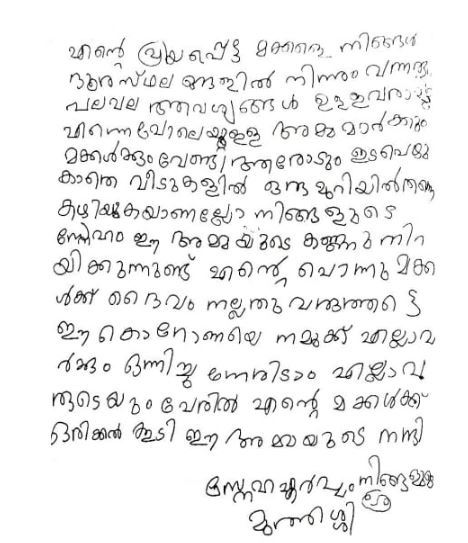 എന്റെ പ്രിയപ്പെട്ട മക്കളെ നിങ്ങൾ
ദൂരസ്ഥലങ്ങളിൽ നിന്നും വന്നു
പലവല ആവശ്യങ്ങൾ ഉള്ളവരാ
എന്നെപോലെയുള്ള അമ്മമാർക്കും
മക്കൾക്കുംവേണ്ടി ആരോടും ഇടപെഴു
കാതെ വീടുകളിൽ ഒരു മുറിയിൽതന്നെ
കഴിയുകയാണല്ലോ നിങ്ങളുടെ
സ്നേഹം ഈ അമ്മയുടെ കണ്ണുനിറ
യിക്കുന്നുണ്ട് എന്റെ പൊന്നുമക്ക
ൾക്ക് ദൈവം നല്ലതുവരുത്തട്ടെ
ഈ കൊറോണയെ നമുക്ക് എല്ലാവ
ർക്കും ഒന്നിച്ചു നേരിടാം എല്ലാവ
രുടെയുംപേരിൽ എന്റെ മക്കൾക്ക്
ഒരിക്കൽ കൂടി ഈ അമ്മയുടെ നന്ദി
സ്നേഹപൂർവ്വം നിങ്ങളുടെ
മുത്തശ്ശി